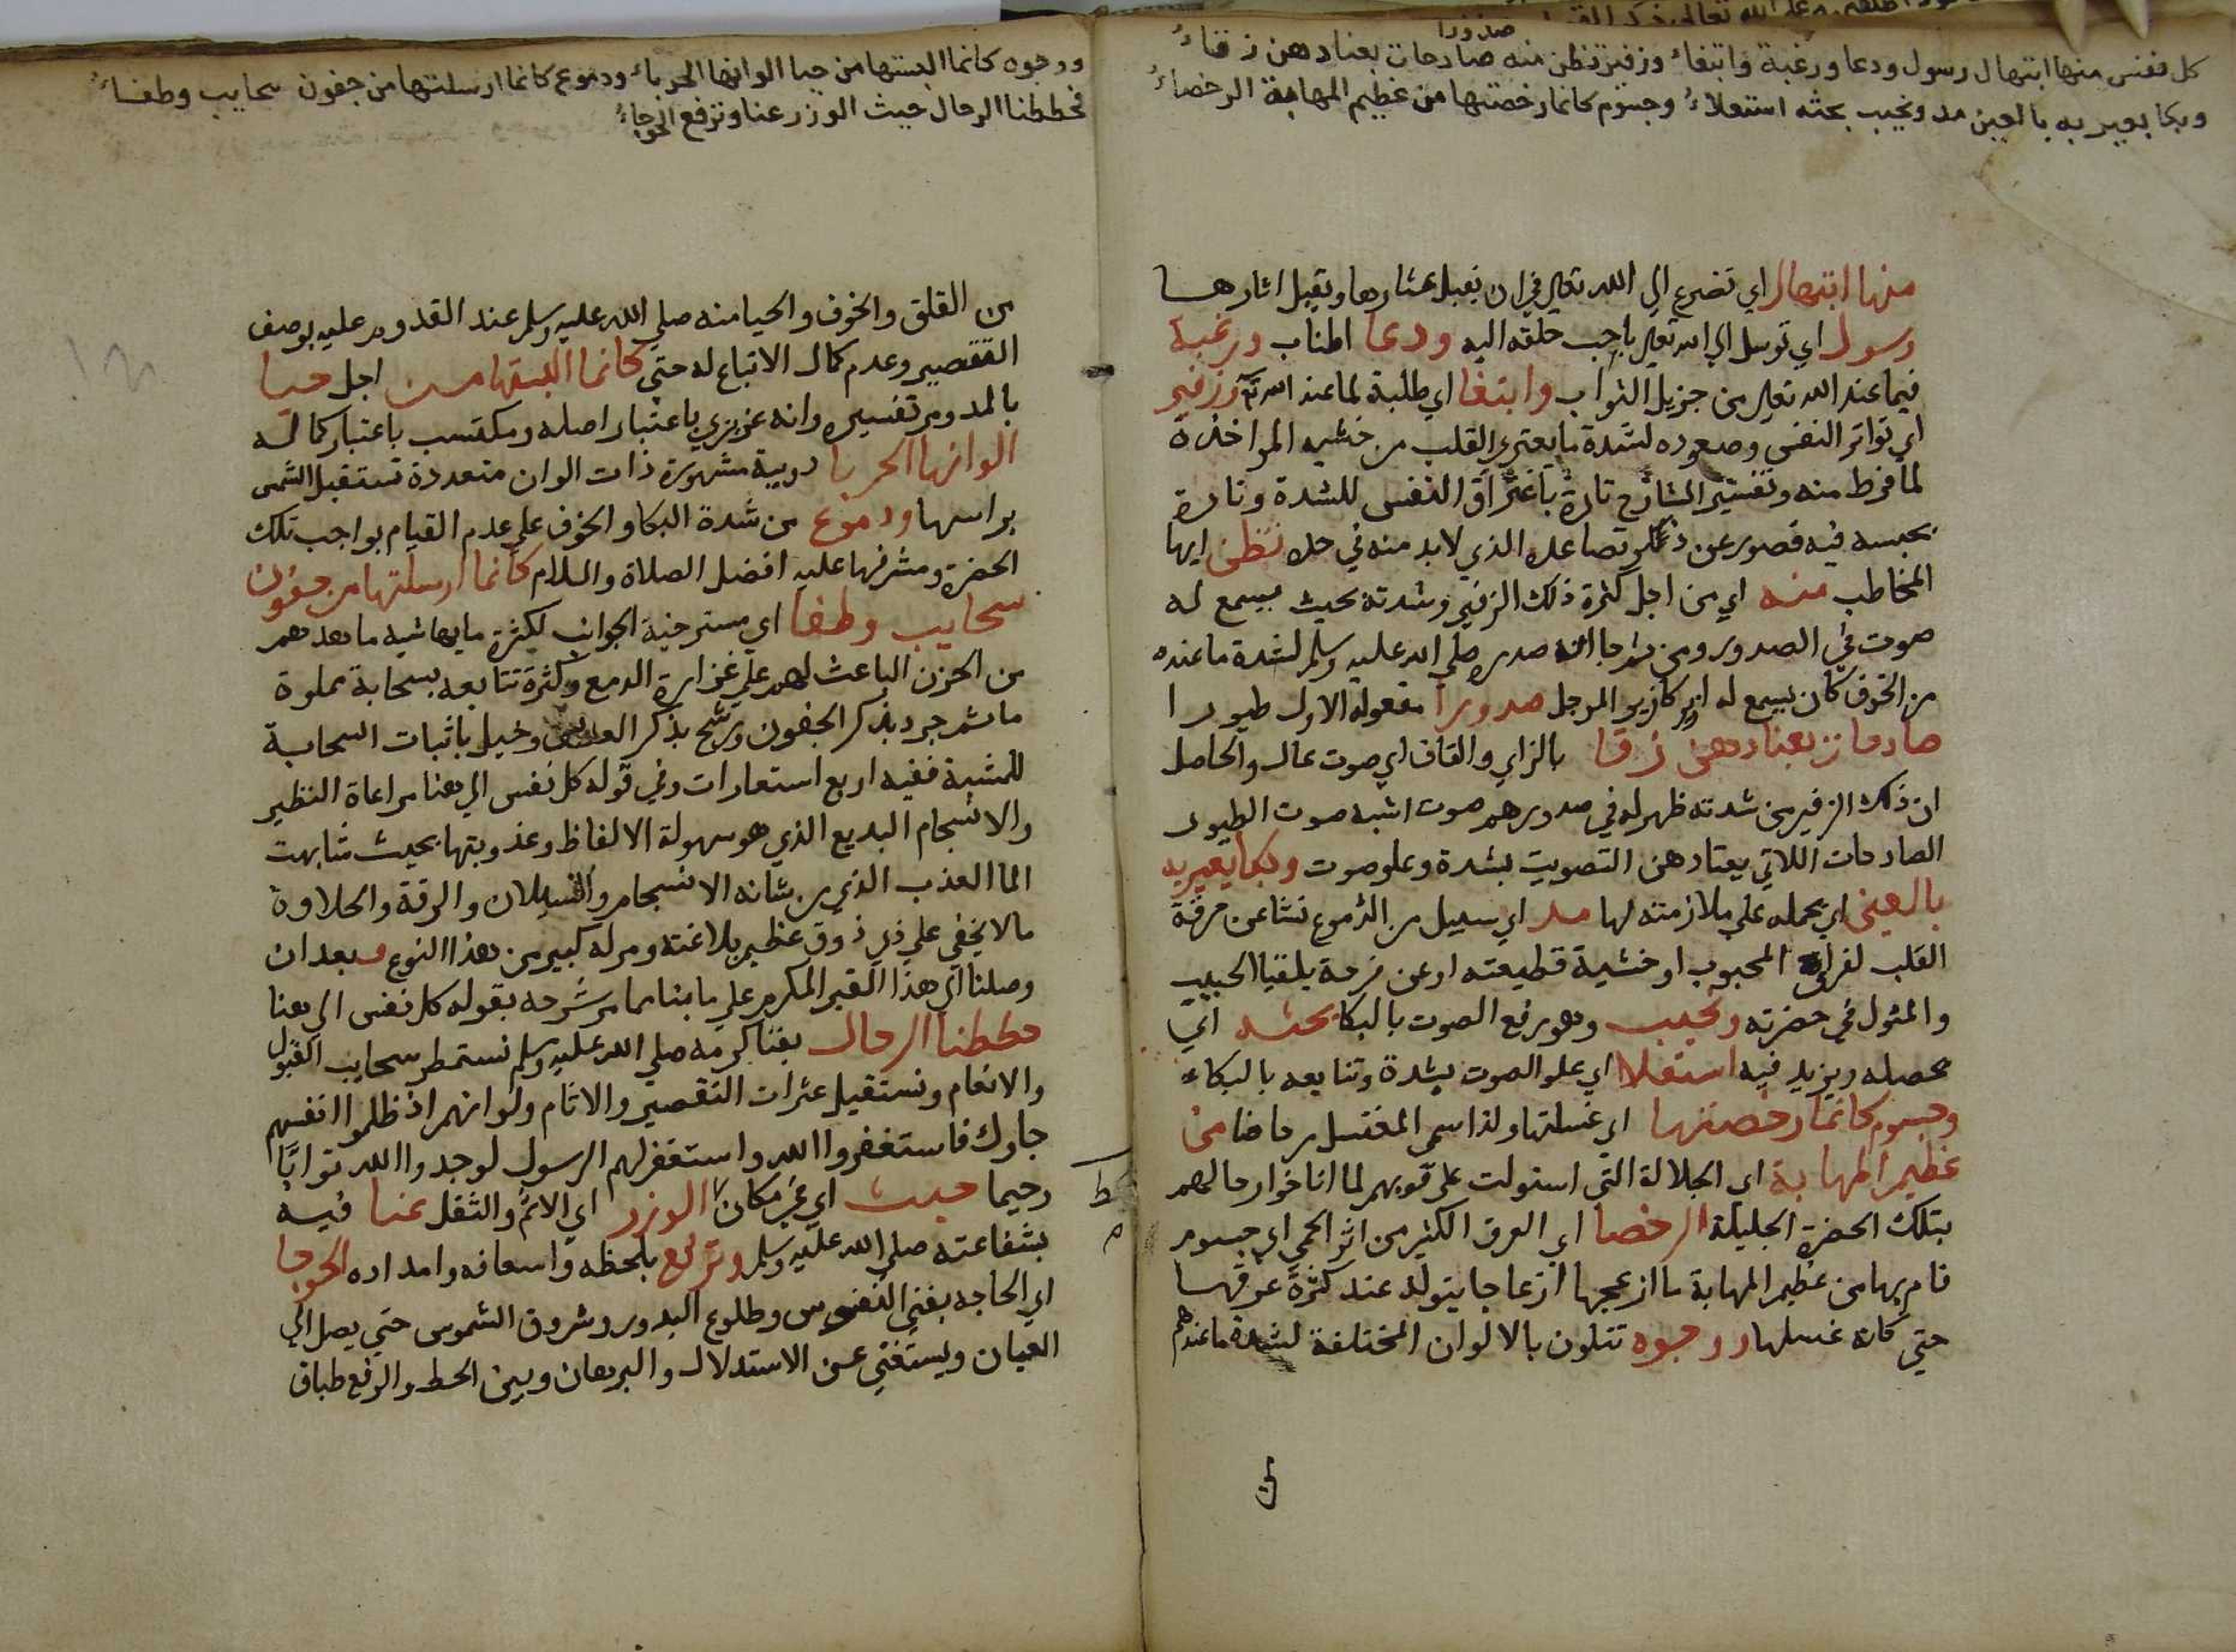 كل نفس منها ابتهال وسول ودعا ورغبة وابتغاء وزفير تظن منه صادحات يعتادهن زقاء
صدورا
وبكا يغريه بالعين مد ونحيب يحثه استعلاء وجسوم كانما رحضتها من عظيم المهابة الرحضاء
منها ابتهال اي تضرع الي الله تعالي في ان يقبل عثارها ويقبل اثارها
وسول اي توسل الي الله تعالي باحب خلقه اليه ودعا اطناب ورغبة
فيما عند الله تعالي من جزيل الثواب وابتغا اي طلبة لما عند الله تعالي وزفير
اي تواتر النفس وصعوده لشدة ما يعتري القلب من خشية المواخذة
لما فرط منه وتفسير الشارح تارة باغتراق النفس للشدة وتارة
بحبسه فيه قصور عن ذكر تصاعده الذي لابد منه في حده تظن ايها
المخاطب منه اي من اجل كثرة ذلك الزفير وشدته بحيث يسمع له
صوت في الصدور ومن ثم جا ان صدره صلي الله عليه وسلم لشدة ما عنده
من الخوف كان يسمع له ازيز كازيز المرجل صدورا مفعوله الاول طيورا
صادحات يعتادهن زقا بالزاي والقاف اي صوت عال والحاصل
ان ذلك الزفير من شدته ظهر له في صدورهم صوت اشبه صوت الطيور
الصادحات اللاتي يعتادهن التصويت بشدة وعلو صوت وبكا يغريه
بالعين اي يحمله علي ملازمته لها مد اي سيل من الدموع نشا عن حرقة
القلب لفراق المحبوب او خشية قطيعته او عن فرحة بلقيا الحبيب
والمثول في حضرته ونحيب وهو رفع الصوت بالبكا يحثه اي
يحصله ويزيد فيه استعلا اي علو الصوت بشدة وتتابعه بالبكاء
وجسوم كانما رحضتها اي غسلتها ولذا سمي المغتسل مرحاضا من
عظيم المهابة اي الجلالة التي استولت علي قلوبهم لما اناخوا رحالهم
بتلك الحضرة الجليلة الرحضا اي العرق الكثير من اثر الحمي اي جسوم
قام بها من عظيم المهابة ما ازعجها ازعاجا يتولد عنه كثرة عرقها
حتي كانه غسلها ووجوه تتلون بالالوان المختلفة لشدة ما عندهم
ووجوه كانما البستها من حيا الوانها الحرباء ودموع كانما ارسلتها من جفون سحايب وطفاء
فحططنا الرحال حيث الوزر عنا وترفع الحوجاء
من القلق والخوف والحيا منه صلي الله عليه وسلم عند القدوم عليه بوصف
التقصير وعدم كمال الاتباع له حتي كانما البستها من اجل حيا
بالمد ومر تفسيره وانه غريزي باعتبار اصله ومكتسب باعتبار كماله
الوانها الحربا دويبة مشهورة ذات الوان متعددة تستقبل الشمس
براسها ودموع من شدة البكا والخوف علي عدم القيام بواجب تلك
الحضرة ومشرفها عليه افضل الصلاة والسلام كانما ارسلتها من جفون
سحايب وطفا اي مسترخية الجوانب لكثرة مايها شبه ما عندهم
من الحزن الباعث لهم علي غزارة الدمع وكثرة تتابعه بسحابة مملوة
ما ثم جرد بذكر الجفون ورشح بذكر وخيل باثبات السحابة
للمشبة ففيه اربع استعارات وفي قوله كل نفس الي هنا مراعاة النظير
والانسجام البديع الذي هو سهولة الالفاظ وعذوبتها بحيث شابهت
الما العذب الذي من شانه الانسجام والسيلان والرقة والحلاوة
مالا يخفي علي ذي ذوق عظيم بلاغته ومر له كبير من هذا النوع وبعد ان
وصلنا الي هذا القبر المكرم علي ما بنا مما مر شرحه بقوله كل نفس الي هنا
حططنا الرحال بفنا كرمه صلي الله عليه وسلم نستمطر سحايب القبول
والانعام ونستقيل عثرات التقصير والاثام ولو انهم اذ ظلموا انفسهم
جاوك فاستغفروا الله واستغفر لهم الرسول لوجدوا الله توابا
رحيما حيث اي في مكان الوزر اي الاثم والثقل عنا فيه
بشفاعته صلي الله عليه وسلم وترفع بلحظه واسعافه وامداده الحوجا
اي الحاجه بغني النفوس وطلوع البدور وشروق الشموس حتي يصل الي
العيان ويستغني عن الاستدلال والبرهان وبين الحط والرفع طباق